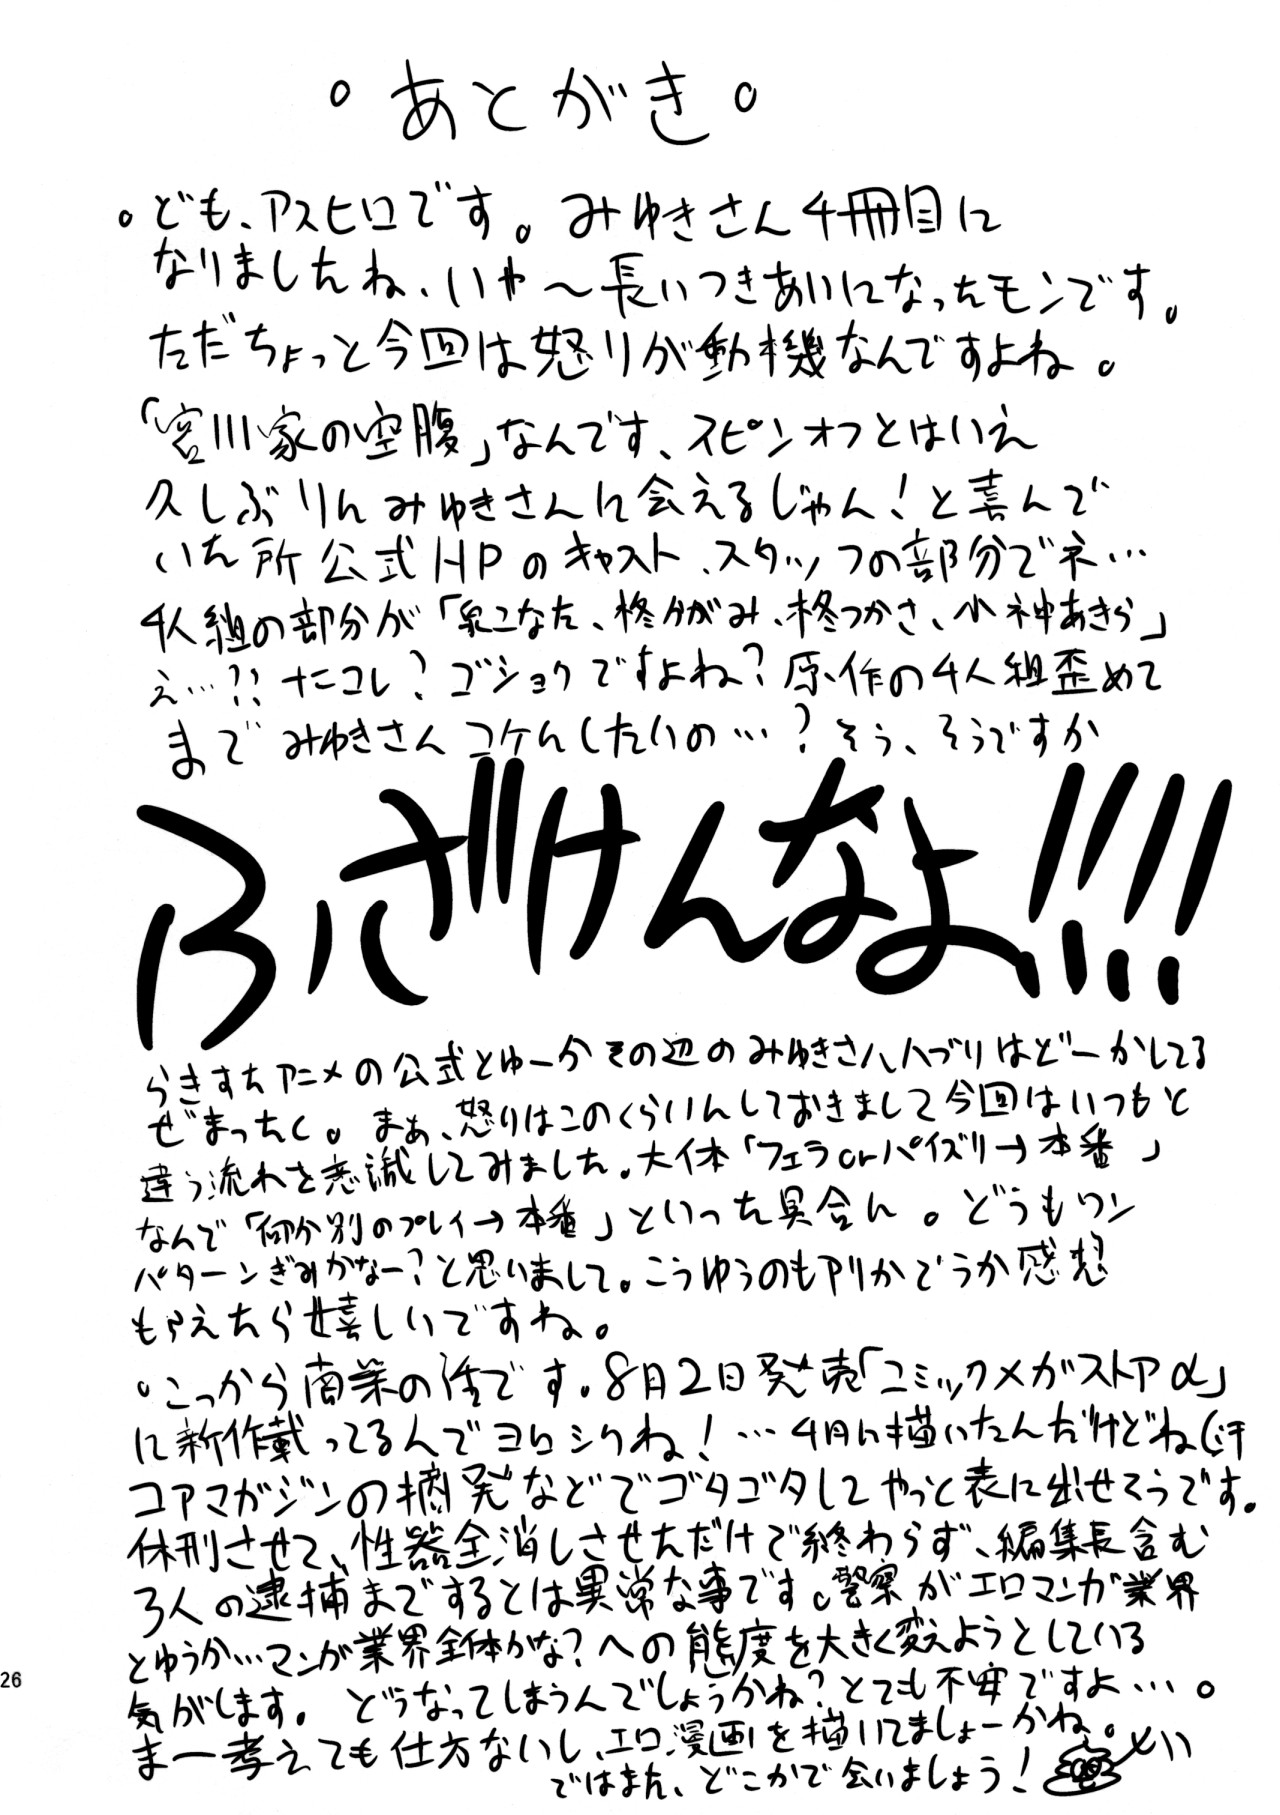 。あとがき。
。ども、アスヒロです。みゆきさん4冊目に
なりましたね、いや～長いつきあいになったモンです。
ただちょっと今回は怒りが動機なんですよね。
「宮川家の空腹」なんです、スピンオフとはいえ
久しぶりにみゆきさんに会えるじゃん!と喜んで
いた所公式HPのキャスト、スタッフの部分でネ…
4人組の部分が「泉こなた、柊かがみ、柊つかさ、小神あきら」
え…?? ナニコレ? ゴショクですよね? 原作の4人組歪めて
までみゆきさんコケにしたいの…? そう、そうですか
ふざけんなよ!!!!
らきすたアニメの公式とゆーかその辺のみゆきさんハブリはどーかしてる
ぜまったく。まぁ、怒りはこのくらいにしておきまして今回はいつもと
違う流れを意識してみました。大体「フェラorパイズリ→本番」
なんで「何か別のプレイ→本番」といった具合に。どうもワン
パターンぎみかなー?と思いまして。こうゆうのもアリかどうか感想
もらえたら嬉しいですね。
。こっから商業の話です。8月2日発売「コミックメガストアα」
に新作載ってるんでヨロシクね! …4月に描いたんだけどね(汗
コアマガジンの摘発などでゴタゴタしてやっと表に出せそうです。
休刊させて、性器全消しさせただけで終わらず、編集長含む
3人の逮捕までするとは異常な事です。警察がエロマンガ業界
とゆうか…マンガ業界全体かな?への態度を大きく変えようとしている
気がします。どうなってしまうんでしょうかね?とても不安ですよ…。
まー考えても仕方ないし、エロ漫画を描いてましょーかね。
ではまた、どこかで会いましょう!
26